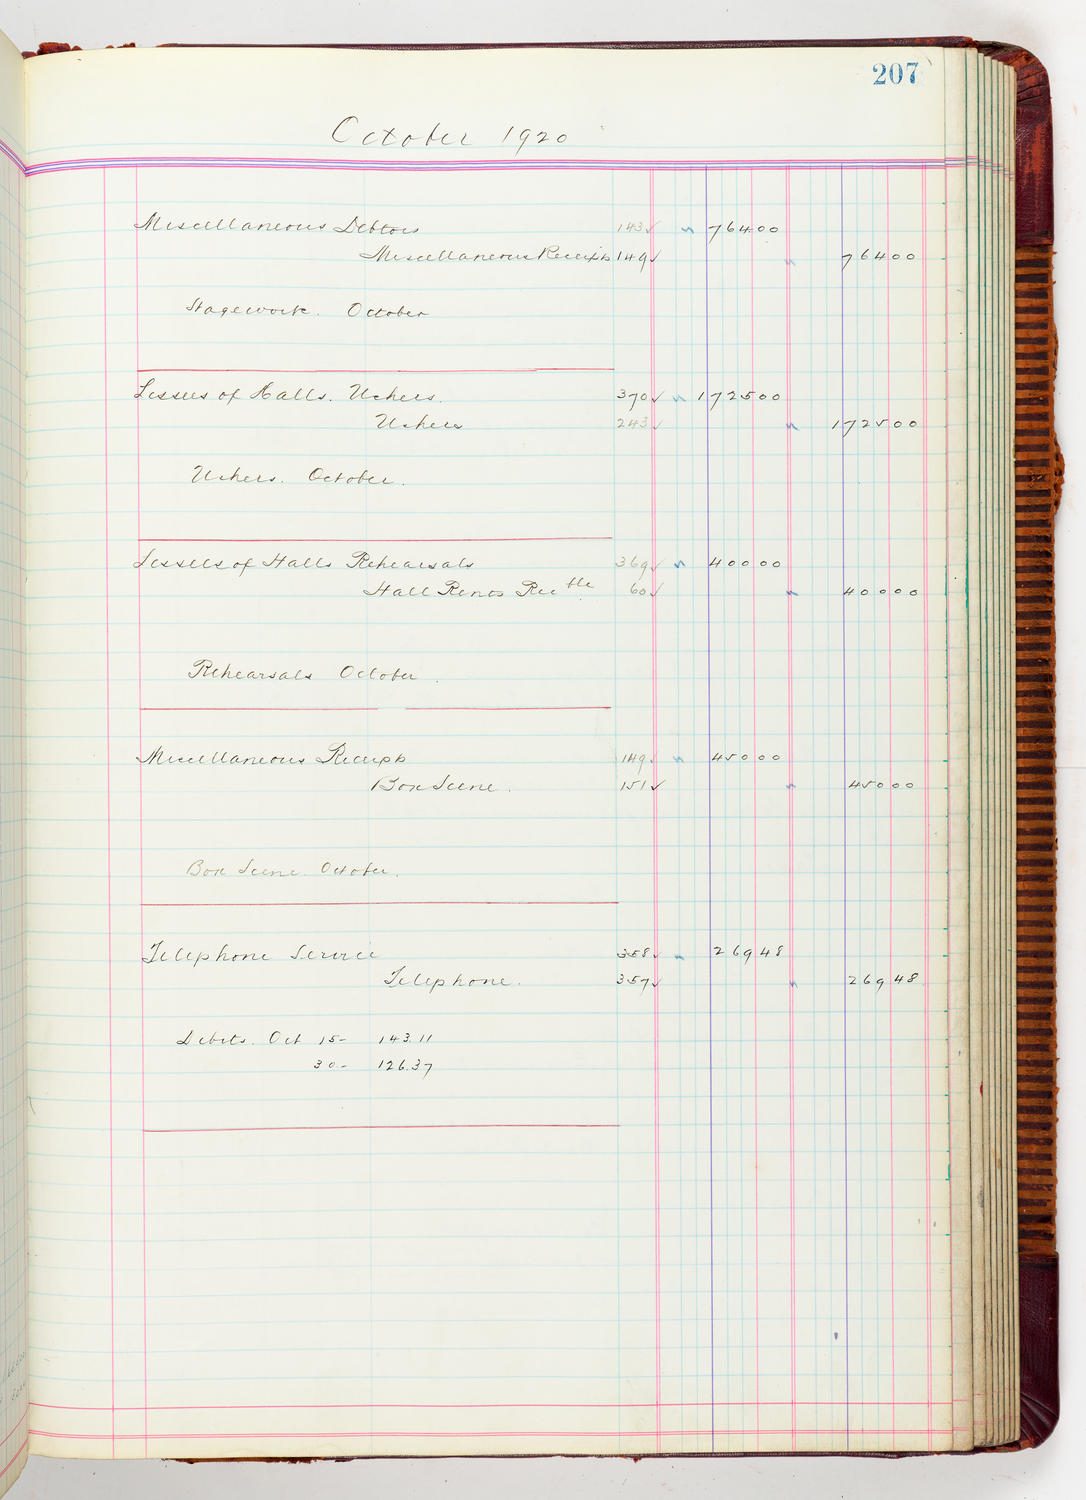 207
October 1920
Miscellaneous Debtors 143 ✓ 764 00
Miscellaneous Receipts 149 ✓ 764 00
Stagework. October
Lessees of Halls. Ushers. 370 ✓ 1725 00
Ushers 243 ✓ 1725 00
Ushers. October.
Lessees of Halls Rehearsals 369 ✓ 400 00
Hall Rents Rec ble 60 ✓ 400 00
Rehearsals October.
Miscellaneous Receipts 149 ✓ 450 00
Box Scene. 151 ✓ 450 00
Box Scene. October.
Telephone Service 358 ✓ 269 48
Telephone. 357 ✓ 269 48
Debits. Oct 15- 143.11
30.- 126.37